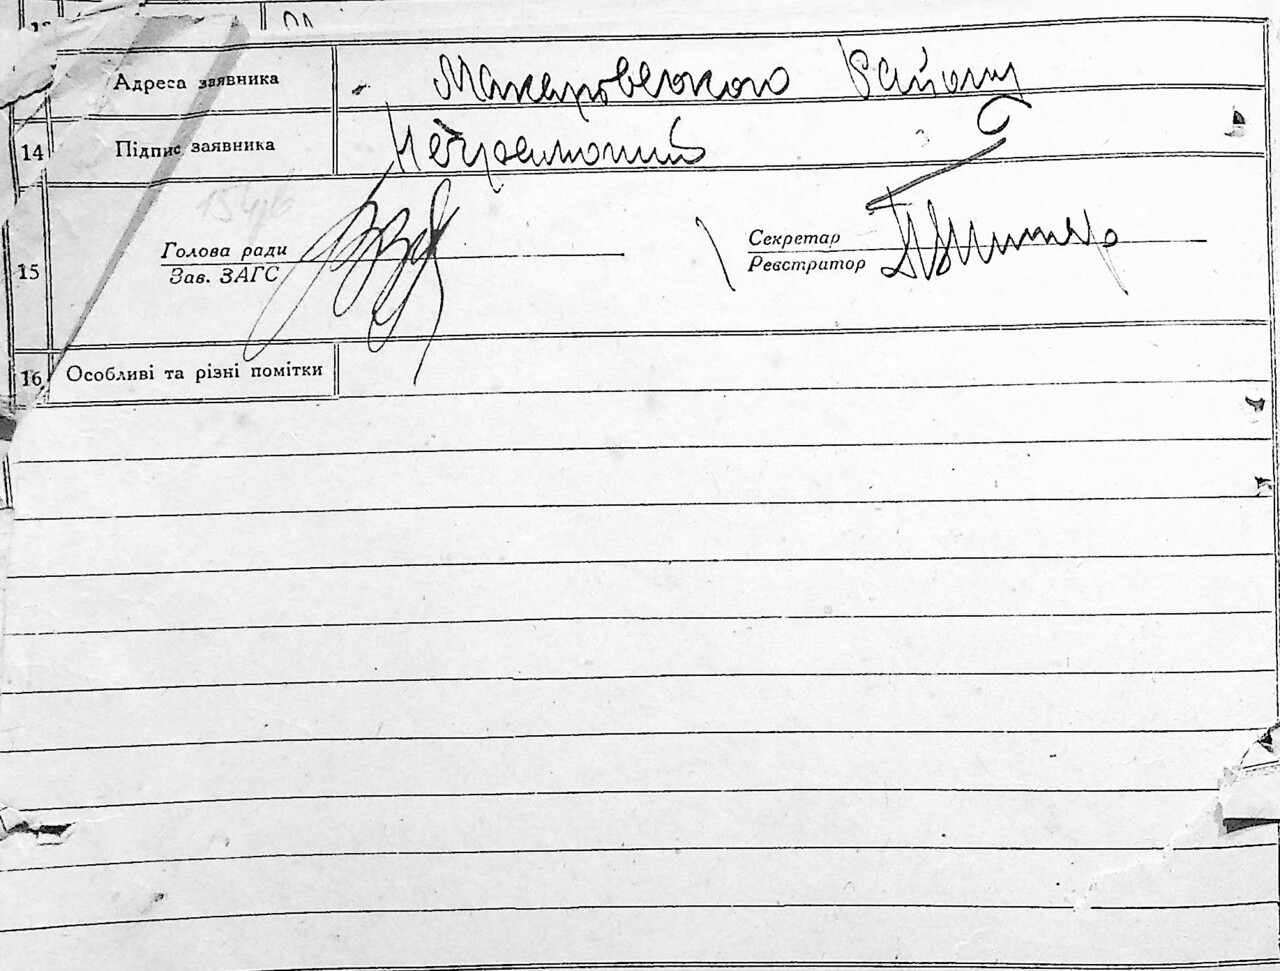 Адреса заявника Макаровського Району
14 Підпис заявника Неграмотний
15 Голова ради Секретар
Зав. ЗАГС Реєстратор
16 Особливі та різні помітки